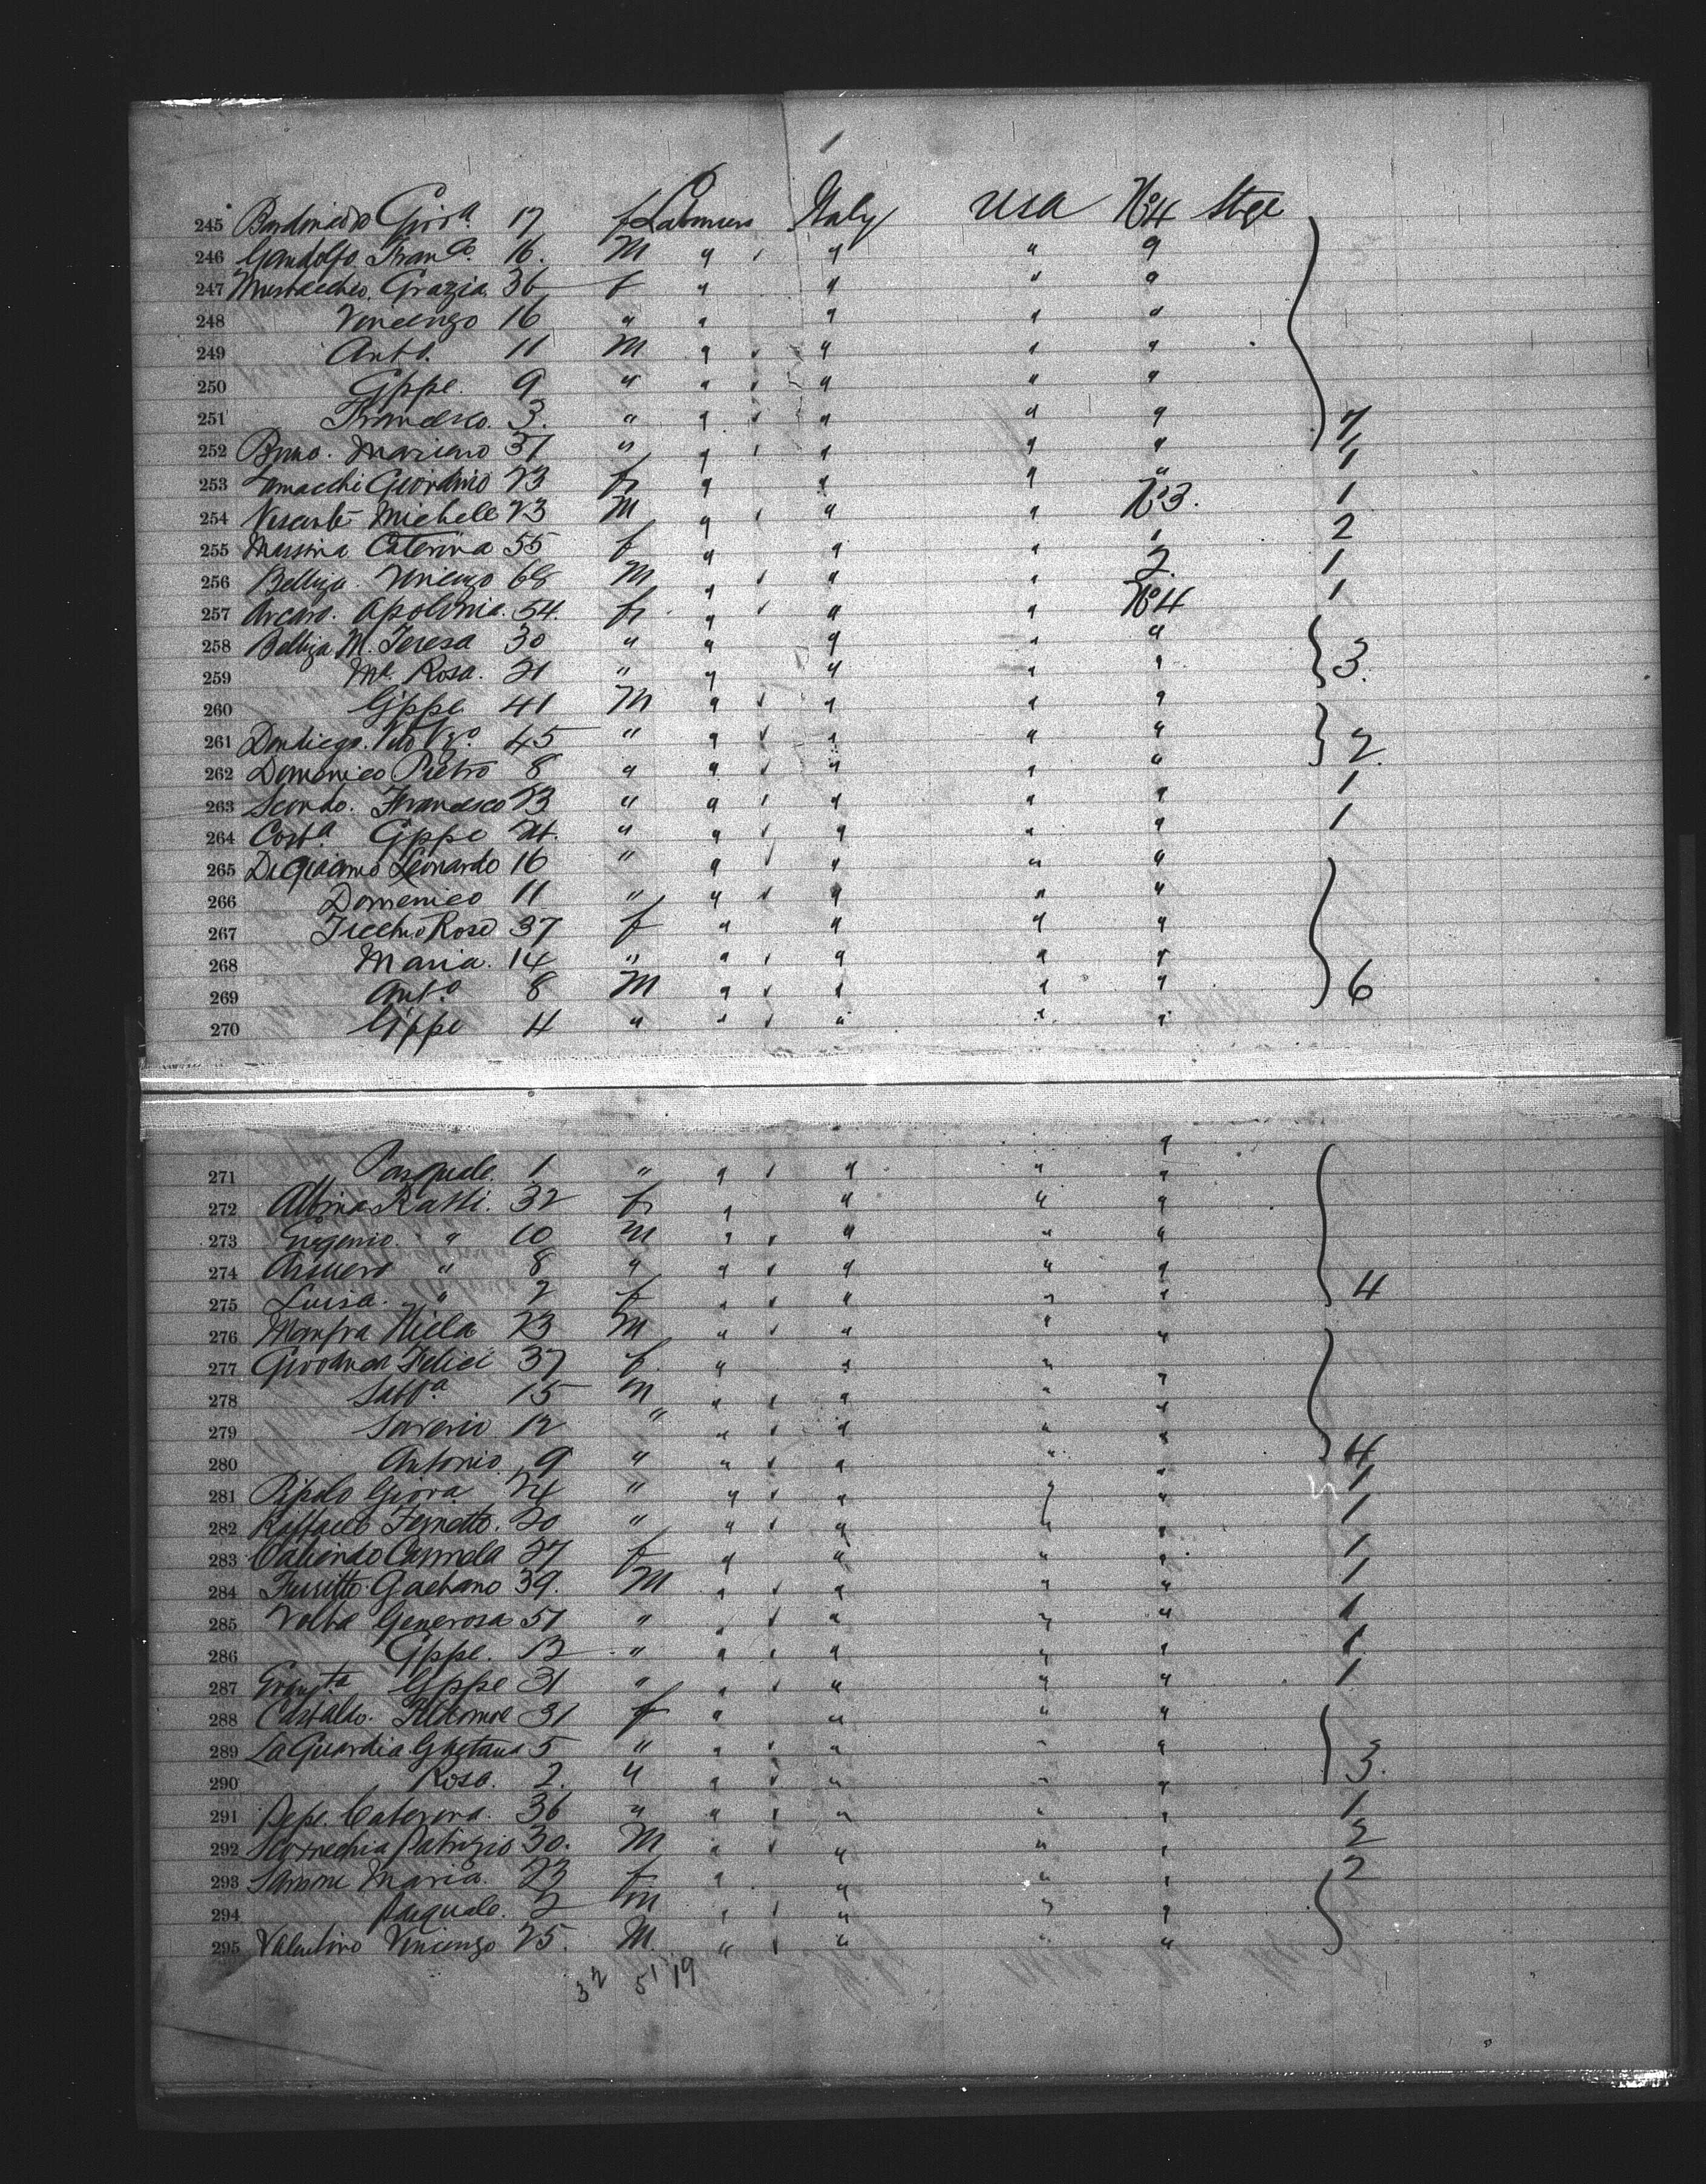 245 Giov.a 17 f Labourers Italy USA No4 Stge
246 Gandolfo Fran.co 16. M " " " "
247 Mustacchio Grazia 36 f " " " "
248 Vincenzo 16 " " " " "
249 Anto. 11 M " " " "
250 Gppe. 9 " " " " "
251 Francesco. 3. " " " " " 7
252 Bruno. Mariano 37 " " " " " 1
253 Giordino 23 f " " " " 1
254 Michele 23 M " " " No3. 2
255 Messina Caterina 55 f " " " " 1
256 Belliza Vincenzo 68 M " " " 2 1
257 Arcaro. Apolonia. 54. f " " " No4
258 Belliza M. Teresa 30 " " " " "
259 Ma Rosa. 21 " " " " " 3.
260 Gppe 41 M " " " "
261 Dondiego. Vito Vzo. 45 " " " " " 2.
262 Domenico Pietro 8 " " " " "
263 Scordo. Francesco 23 " " " " " 1
264 Cost.a Gppe 24. " " " " " 1
265 Di Giacomo Leonardo 16 " " " " "
266 Domenico 11 " " " " "
267 Rosa 37 f " " " "
268 Maria. 14 " " " " "
269 Anto 8 M " " " " 6
270 Gppe 4 " " " " "
271 Pasquale. 1 " " " " "
272 Albina Ratti. 32 f " " " "
273 Eugenio. " 10 M " " " "
274 " 8 " " " " "
275 Luisa. " 2 f " " " " 4
276 Manfra 23 M " " " "
277 Felici 37 f. " " " "
278 15 M " " " "
279 Saverio 12 " " " " "
280 Antonio 9 " " " " " 4
281 Pipolo Giova. 24 " " " " " 1
282 Raffaele 20 " " " " " 1
283 Caliendo Carmela 27 f " " " " 1
284 Gaetano 39. M " " " " 1
285 Volpe Generosa 51 " " " " " 1
286 Gppe. 13 " " " " " 1
287 Gppe 31 " " " " " 1
288 Castaldo. Filomone 31 f " " " "
289 La Guardia Gaetana 5 " " " " " 3.
290 Rosa. 2. " " " " "
291 Pepe. Caterina. 36 " " " " " 1
292 Patrizio 30. M " " " " 2
293 Sansone Maria. 23 f " " " " 2
294 Pasquale. 2 M " " " "
295 Valentino Vincenzo 25. M. " " " "
32 51 19